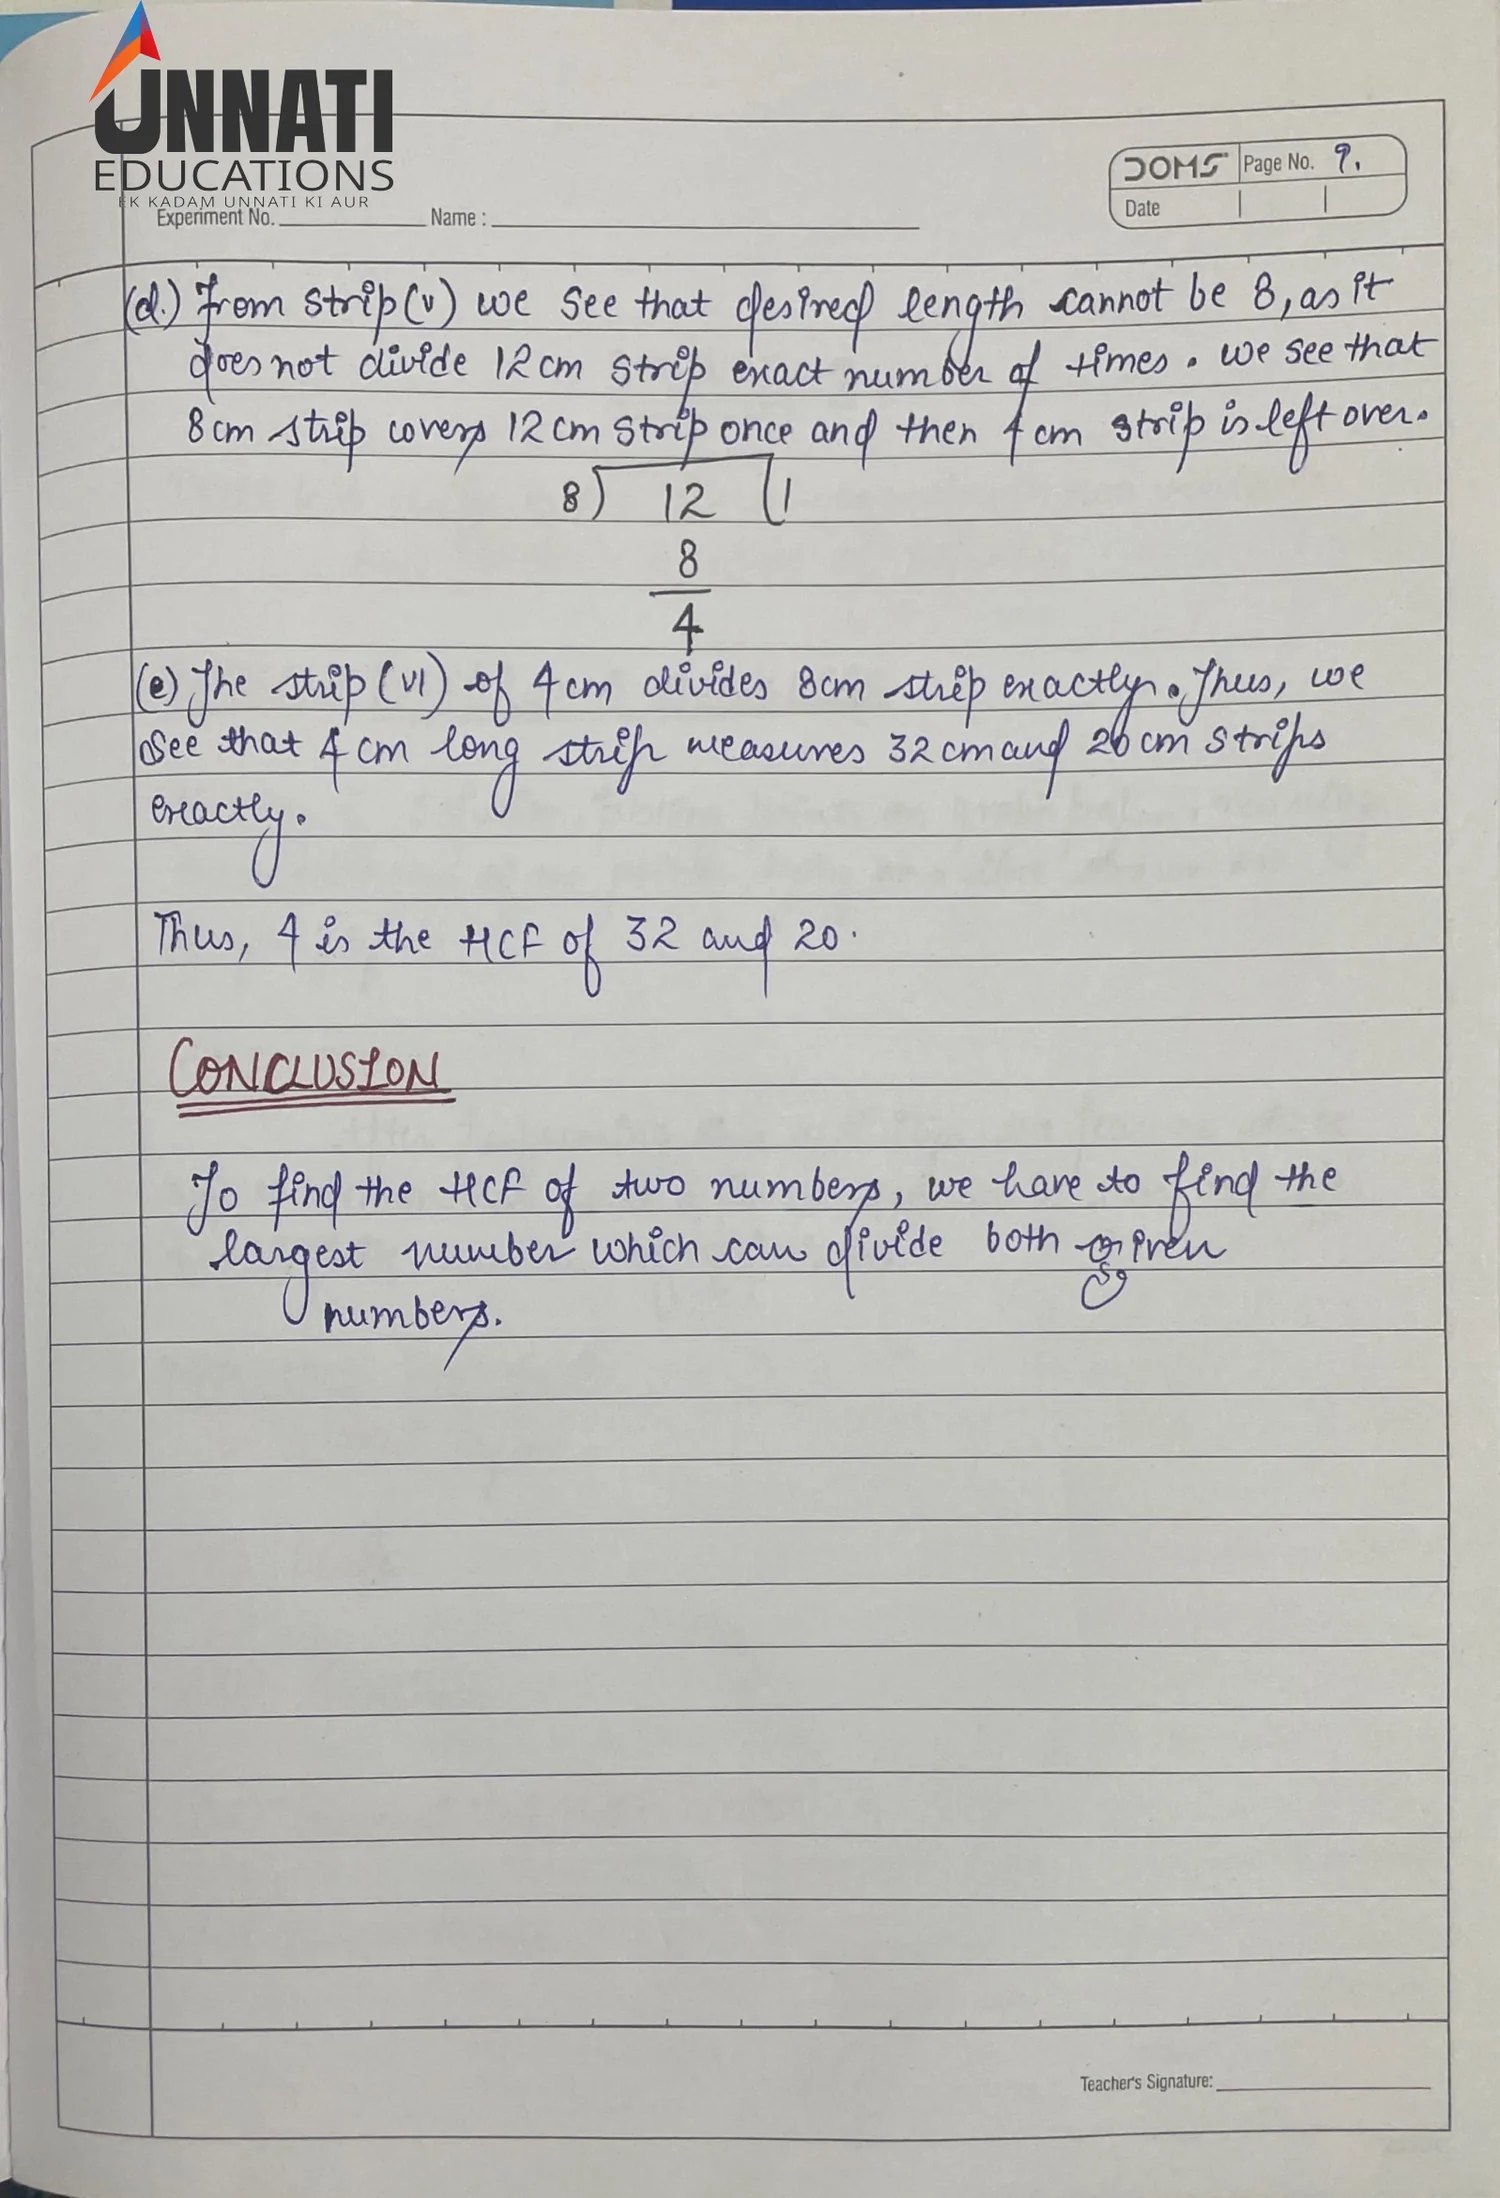 UNNATI
EDUCATIONS
EK KADAM UNNATI KI AUR
DOMS Page No. 9.
Date
Experiment No. Name :
(d.) From strip (v) we see that desired length cannot be 8, as it
does not divide 12 cm strip exact number of times. We see that
8 cm strip covers 12 cm strip once and then 4 cm strip is left over.
8) 12 (1
8
4
(e) The strip (VI) of 4 cm divides 8 cm strip exactly. Thus, we
see that 4 cm long strip measures 32 cm and 20 cm strips
exactly.
Thus, 4 is the HCF of 32 and 20.
CONCLUSION
To find the HCF of two numbers, we have to find the
largest number which can divide both given
numbers.
Teacher's Signature: